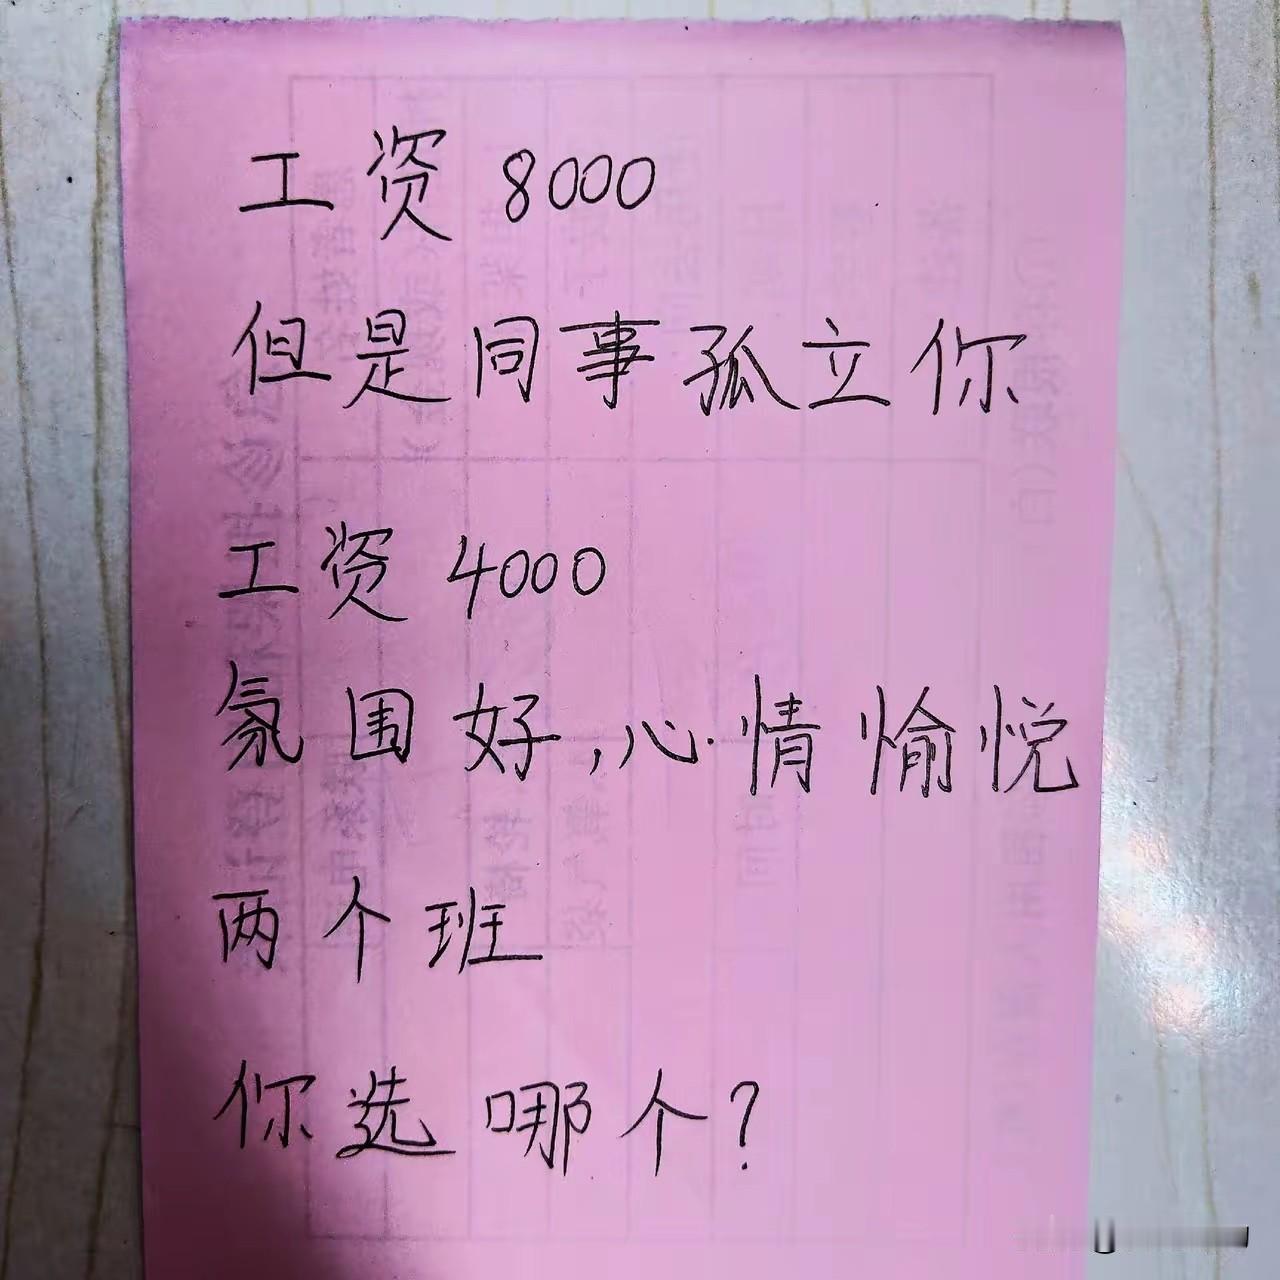 工资8000
但是同事孤立你
工资4000
氛围好,心情愉悦
两个班
你选哪个?